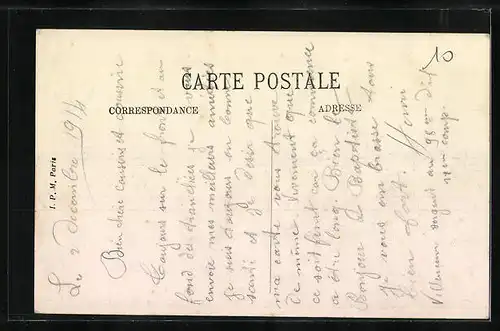 CARTE POSTALE
CORRESPONDANCE
ADRESSE
I. P. M. Paris
10
Le 2 Decembre 1914
Bien chère cousins et cousine
Toujours sur le front et au
fond des tranchées je vous
envoie mes meilleurs amitiés
Je suis toujours en bonne
santé et je désir que
ma carte vous trouve
de même. Vivement que
ce soit finit car ça commence
a étre long. Bien le
Bonjour de Baptiste
Je vous en brasse tous
bien fort. Henri
sergent au 98ème d'Inf
12ème comp.